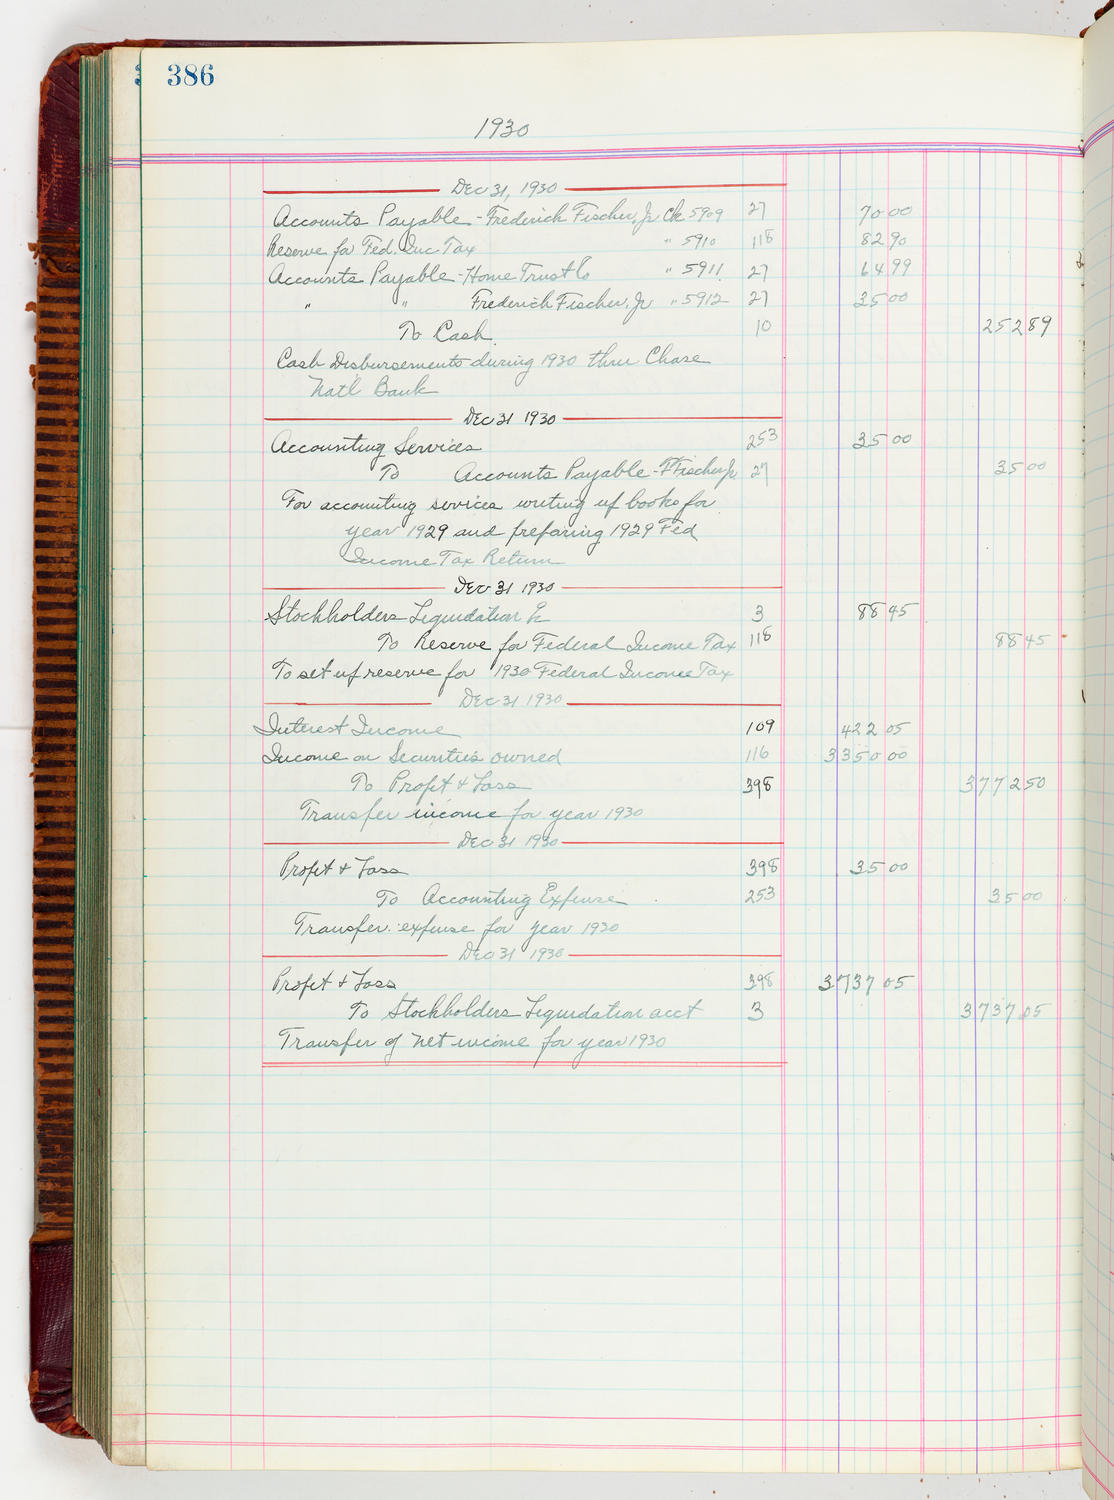 386
1930
Dec 31, 1930
Accounts Payable - Frederick Fischer, Jr Ck 5909 27 70 00
Reserve for Fed. Inc Tax " 5910 118 82 90
Accounts Payable - Home Trust Co " 5911 27 64 99
" " Frederick Fischer, Jr " 5912 27 35 00
To Cash. 10 252 89
Cash Disbursements during 1930 thru Chase
Natl Bank
Dec 31 1930
Accounting Services 253 35 00
To Accounts Payable - F Fischer Jr 27 35 00
For accounting services writing up books for
year 1929 and preparing 1929 Fed
Income Tax Return
Dec 31 1930
Stockholders Liquidation a/c 3 88 45
To Reserve for Federal Income Tax 118 88 45
To set up reserve for 1930 Federal Income Tax
Dec 31 1930
Interest Income 109 422 05
Income on Securities owned 116 3350 00
To Profit & Loss 398 3772 50
Transfer income for year 1930
Dec 31 1930
Profit & Loss 398 35 00
To Accounting Expense 253 35 00
Transfer expense for year 1930
Dec 31 1930
Profit & Loss 398 3737 05
To Stockholders Liquidation acct 3 3737 05
Transfer of net income for year 1930